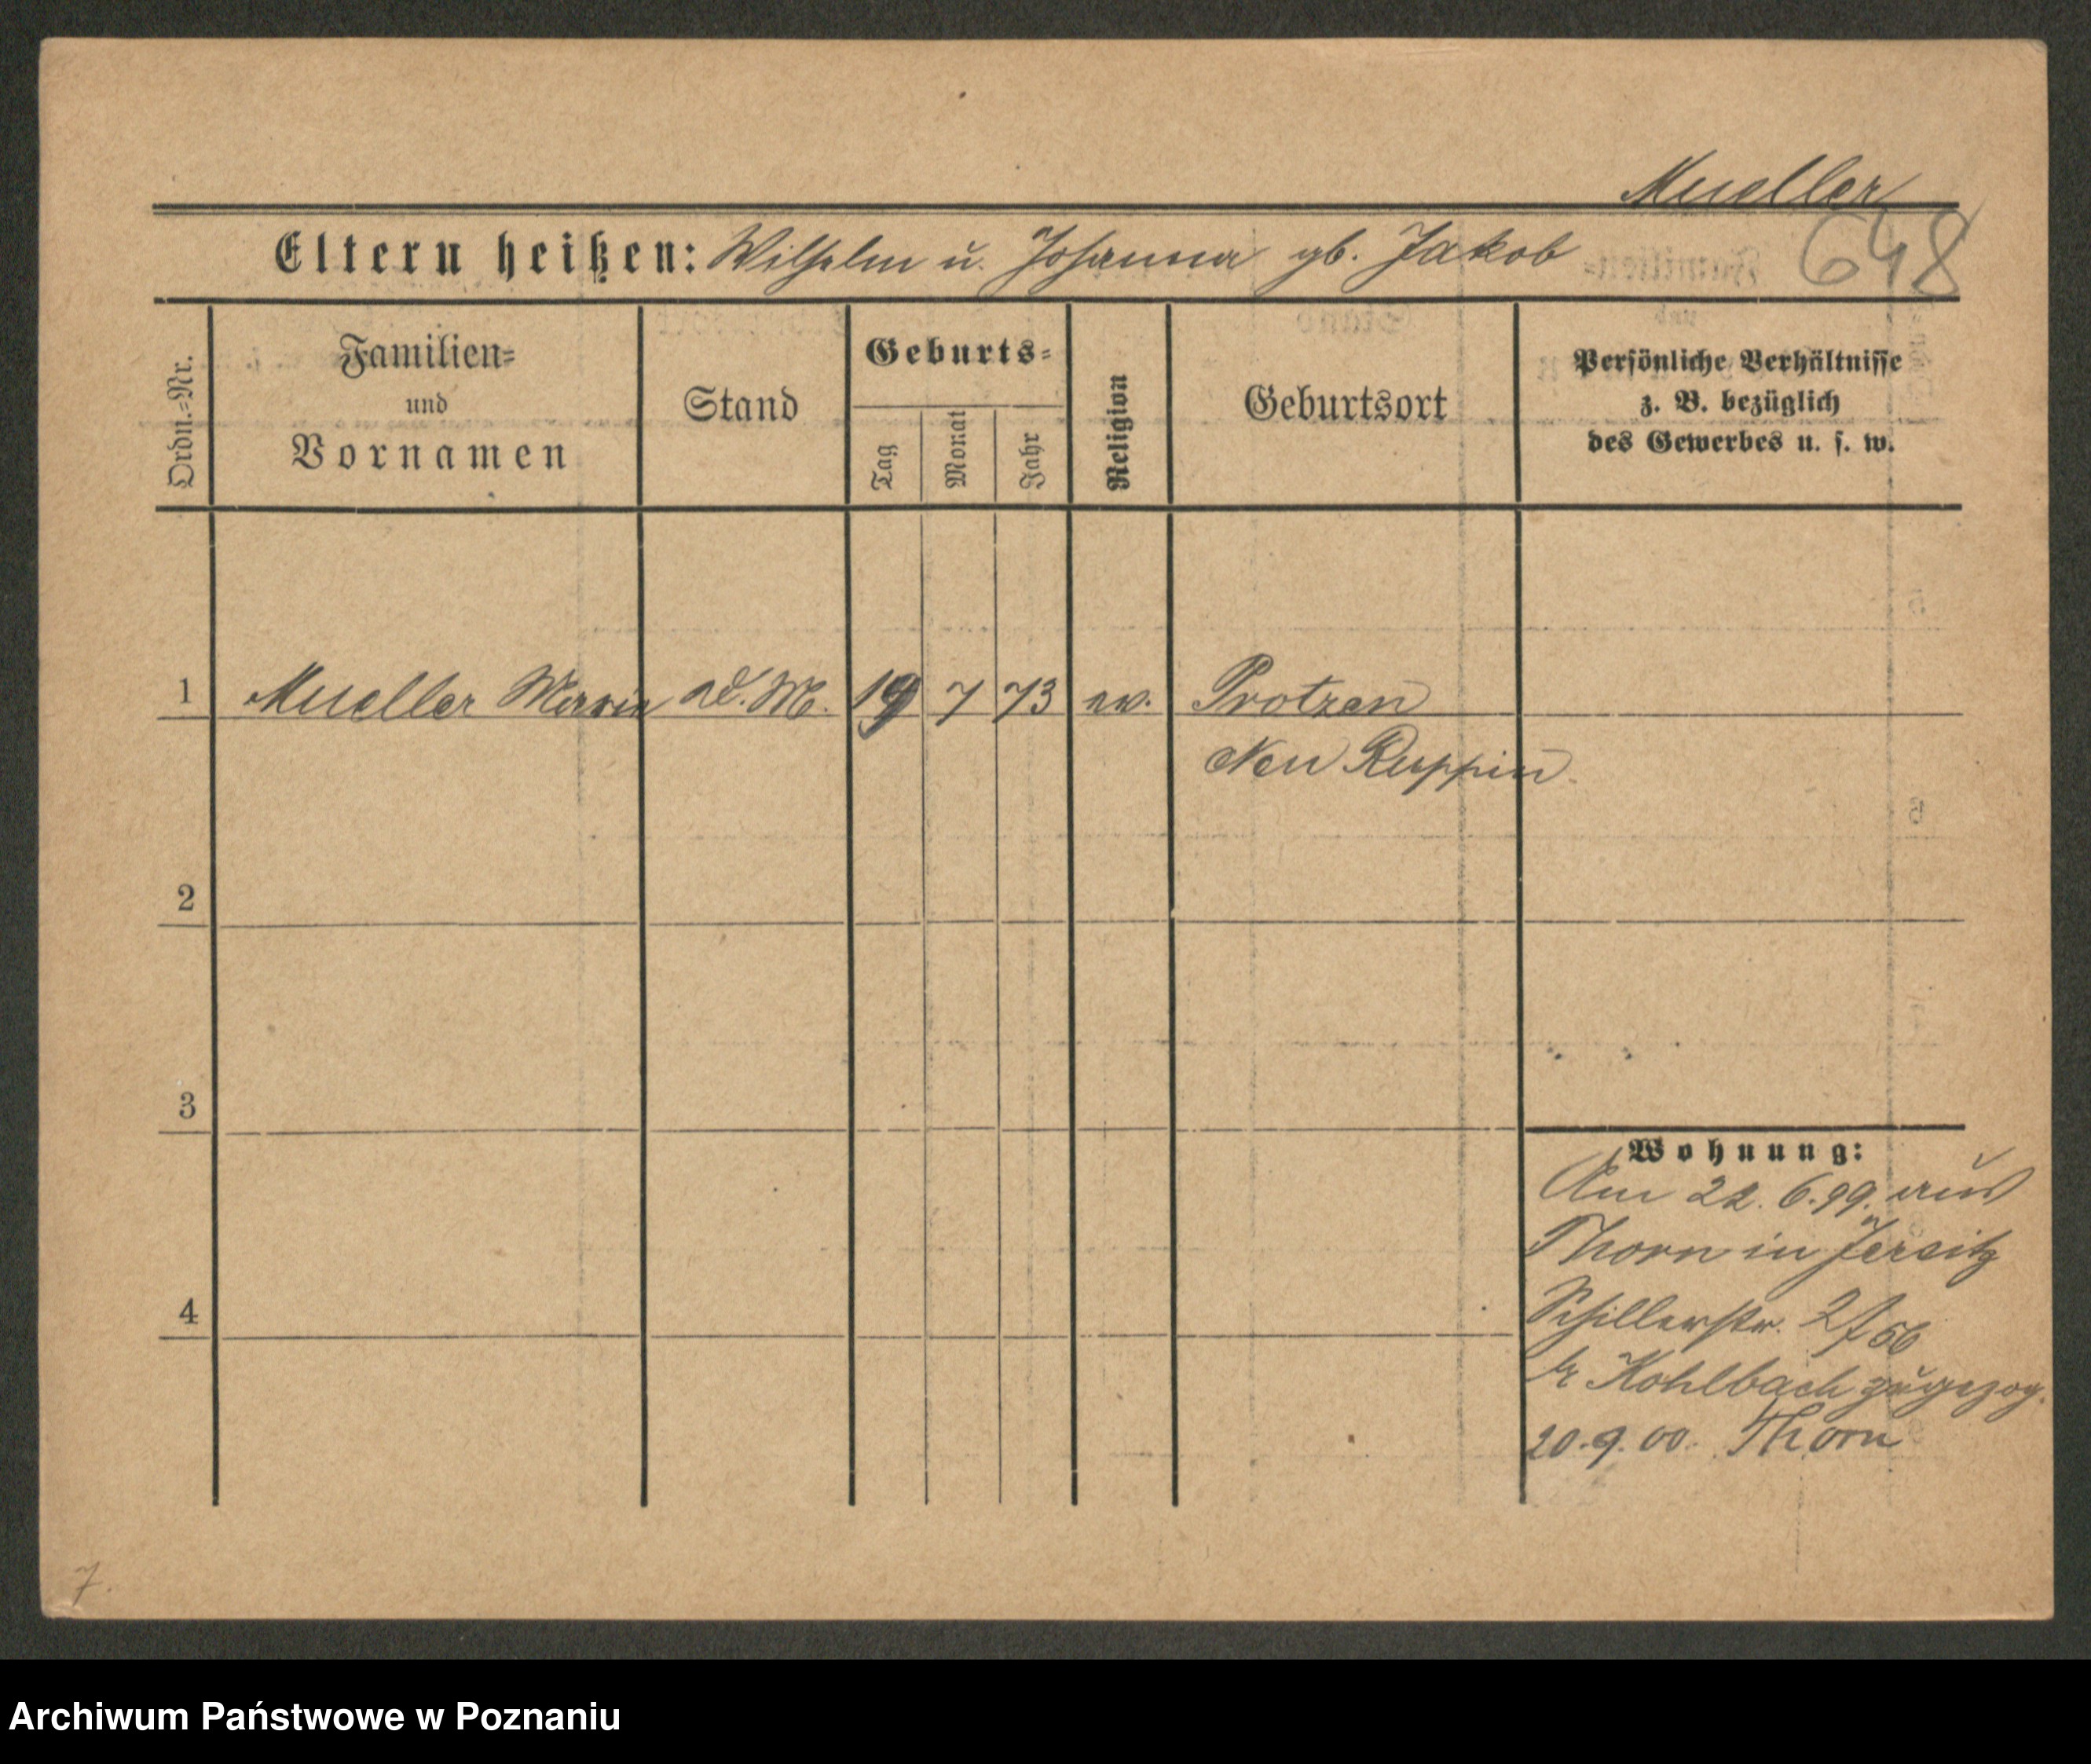 Mueller
648
Eltern heißen: Wilhelm u. Johanna gb. Jakob
Ordn.=Nr.
Familien=
und
Vornamen
Stand
Geburts=
Tag
Monat
Jahr
Religion
Geburtsort
Persönliche Verhältnisse
z. B. bezüglich
des Gewerbes u. s. w.
1 Mueller Marie 19 7 73 ev. Protzen
Neu Ruppin
2
3
4
Wohnung:
Am 22.6.99. aus
Thorn in Jersitz
Schillerstr.
Kohlbach zugezog.
20.9.00. Thorn
7.
Archiwum Państwowe w Poznaniu